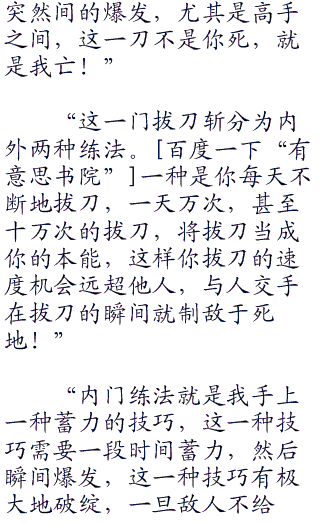 突然间的爆发，尤其是高手
之间，这一刀不是你死，就
是我亡！”
“这一门拔刀斩分为内
外两种练法。[百度一下“有
意思书院”]一种是你每天不
断地拔刀，一天万次，甚至
十万次的拔刀，将拔刀当成
你的本能，这样你拔刀的速
度机会远超他人，与人交手
在拔刀的瞬间就制敌于死
地！”
“内门练法就是我手上
一种蓄力的技巧，这一种技
巧需要一段时间蓄力，然后
瞬间爆发，这一种技巧有极
大地破绽，一旦敌人不给